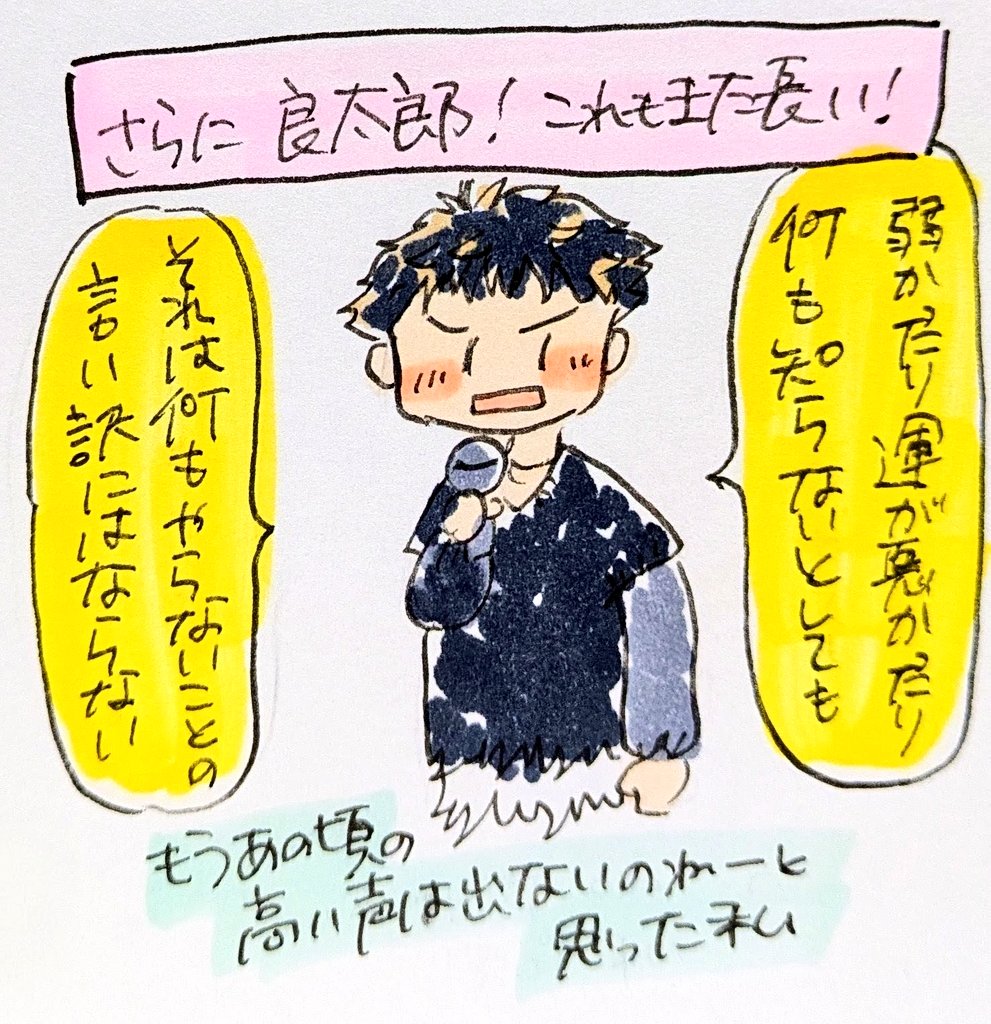 さらに 良太郎！ これもまた長い！
弱かったり運が悪かったり
何も知らないとしても
それは何もやらないことの
言い訳にはならない
もうあの頃の
高い声は出ないのねーと
思った私